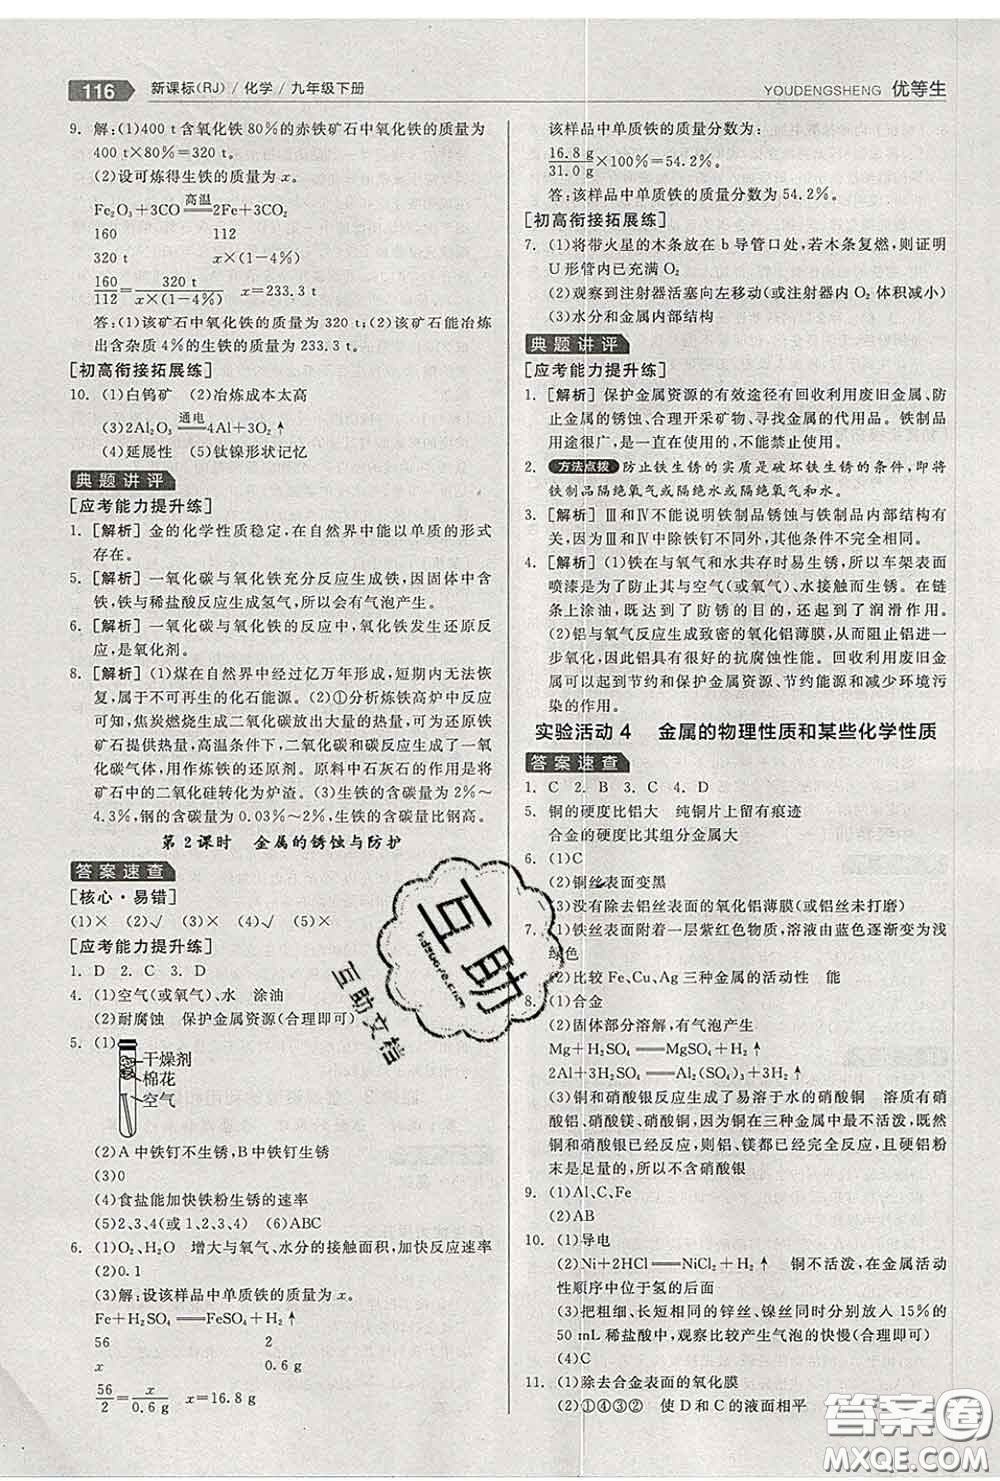 116 新课标(RJ)/化学/九年级下册
YOUDENGSHENG 优等生
9. 解:(1)400 t含氧化铁80%的赤铁矿石中氧化铁的质量为
400 t×80%=320 t。
(2)设可炼得生铁的质量为x。
Fe₂O₃+3CO 高温 2Fe+3CO₂
160 112
320 t x×(1-4%)
160/112=320 t/(x×(1-4%)) x=233.3 t
答:(1)该矿石中氧化铁的质量为320 t;(2)该矿石能冶炼
出含杂质4%的生铁的质量为233.3 t。
[初高衔接拓展练]
10. (1)白钨矿 (2)冶炼成本太高
(3)2Al₂O₃ 通电 4Al+3O₂↑
(4)延展性 (5)钛镍形状记忆
典题讲评
[应考能力提升练]
1. [解析] 金的化学性质稳定,在自然界中能以单质的形式
存在。
5. [解析] 一氧化碳与氧化铁充分反应生成铁,因固体中含
铁,铁与稀盐酸反应生成氢气,所以会有气泡产生。
6. [解析] 一氧化碳与氧化铁的反应中,氧化铁发生还原反
应,是氧化剂。
8. [解析] (1)煤在自然界中经过亿万年形成,短期内无法恢
复,属于不可再生的化石能源。(2)①分析炼铁高炉中反应
可知,焦炭燃烧生成二氧化碳放出大量的热,可以为还原铁
矿石提供热量,高温条件下,二氧化碳和碳反应生成了一氧
化碳,用作炼铁的还原剂。原料中石灰石的主要作用是将
矿石中的二氧化硅转化为炉渣。②生铁的含碳量为2%~
4.3%,钢的含碳量为0.03%~2%,生铁的含碳量比钢高。
第2课时 金属的锈蚀与防护
答案速查
[核心·易错]
(1)× (2)√ (3)× (4)√ (5)×
[应考能力提升练]
1. D 2. C 3. D
4. (1)空气(或氧气)、水 涂油
(2)耐腐蚀 保护金属资源(合理即可)
5. (1)
干燥剂
棉花
空气
(2)A中铁钉不生锈,B中铁钉生锈
(3)0
(4)食盐能加快铁粉生锈的速率
(5)2、3、4(或1、2、3、4) (6)ABC
6. (1)O₂、H₂O 增大与氧气、水分的接触面积,加快反应速率
(2)0.1
(3)解:设该样品中单质铁的质量为x。
Fe+H₂SO₄══FeSO₄+H₂↑
56 2
x 0.6 g
56/2=x/0.6 g x=16.8 g
该样品中单质铁的质量分数为:
16.8 g/31.0 g×100%=54.2%。
答:该样品中单质铁的质量分数为54.2%。
[初高衔接拓展练]
7. (1)将带火星的木条放在b导管口处,若木条复燃,则证明
U形管内已充满O₂
(2)观察到注射器活塞向左移动(或注射器内O₂体积减小)
(3)水分和金属内部结构
典题讲评
[应考能力提升练]
1. [解析] 保护金属资源的有效途径有回收利用废旧金属、防
止金属的锈蚀、合理开采矿物、寻找金属的代用品。铁制品
用途很广,是一直在使用的,不能禁止使用。
2. 方法点拨 防止铁生锈的实质是破坏铁生锈的条件,即将
铁制品隔绝氧气或隔绝水或隔绝氧气和水。
3. [解析] Ⅲ和Ⅳ不能说明铁制品锈蚀与铁制品内部结构有
关,因为Ⅲ和Ⅳ中除铁钉不同外,其他条件不完全相同。
4. [解析] (1)铁在与氧气和水共存时易生锈,所以车架表面
喷漆是为了防止其与空气(或氧气)、水接触而生锈。在链
条上涂油,既达到了防锈的目的,还起到了润滑作用。
(2)铝与氧气反应生成致密的氧化铝薄膜,从而阻止铝进一
步氧化,因此铝具有很好的抗腐蚀性能。回收利用废旧金
属可以起到节约和保护金属资源、节约能源和减少环境污
染的作用
实验活动4 金属的物理性质和某些化学性质
答案速查
1. C 2. B 3. C 4. D
5. 铜的硬度比铝大 纯铜片上留有痕迹
合金的硬度比其组分金属大
6. (1)C
(2)铜丝表面变黑
(3)没有除去铝丝表面的氧化铝薄膜(或铝丝未打磨)
7. (1)铁丝表面附着一层紫红色物质,溶液由蓝色逐渐变为浅
绿色
(2)比较Fe、Cu、Ag三种金属的活动性 能
8. (1)合金
(2)固体部分溶解,有气泡产生
Mg+H₂SO₄══MgSO₄+H₂↑
2Al+3H₂SO₄══Al₂(SO₄)₃+3H₂↑
(3)铜与硝酸银反应生成了易溶于水的硝酸铜 溶质有硝
酸铝、硝酸镁、硝酸铜,因为铜在三种金属中最不活泼,既然
铜和硝酸银已经反应,则铝、镁都已经完全反应,且硬铝粉
末是足量的,所以不含硝酸银
9. (1)Al、C、Fe
(2)AB
10. (1)导电
(2)Ni+2HCl══NiCl₂+H₂↑ 铜不活泼,在金属活动
性顺序中位于氢的后面
(3)把粗细、长短相同的锌丝、镍丝同时分别放入15%的
50 mL稀盐酸中,观察比较产生气泡的快慢(合理即可)
(4)C
11. (1)除去合金表面的氧化膜
(2)①④③② 使D和C的液面相平
互助
互助文档
答案圈
MXQE.COM